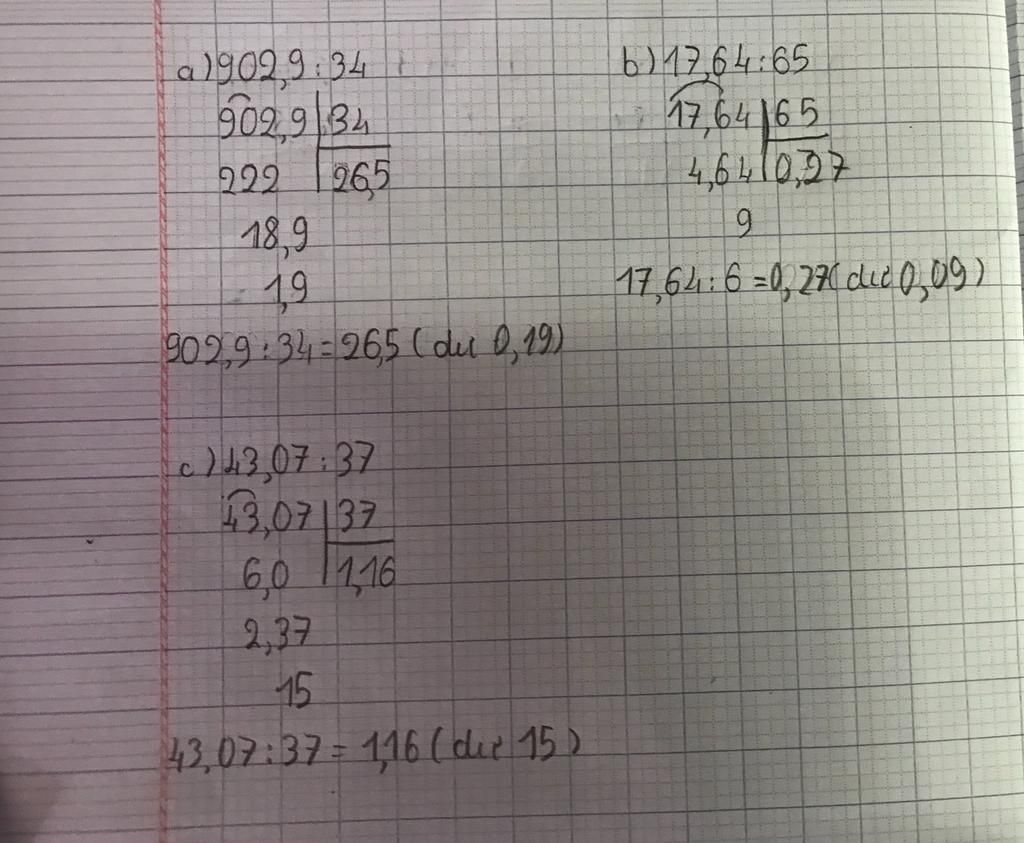 a) 902,9 : 34
902,9 34
222 26,5
18,9
1,9
902,9 : 34 = 26,5 ( dư 0,19)
b) 17,64 : 65
17,64 65
4,64 0,27
9
17,64 : 6 = 0,27( dư 0,09)
c) 43,07 : 37
43,07 37
6,0 1,16
2,37
15
43,07 : 37 = 1,16 ( dư 15 )